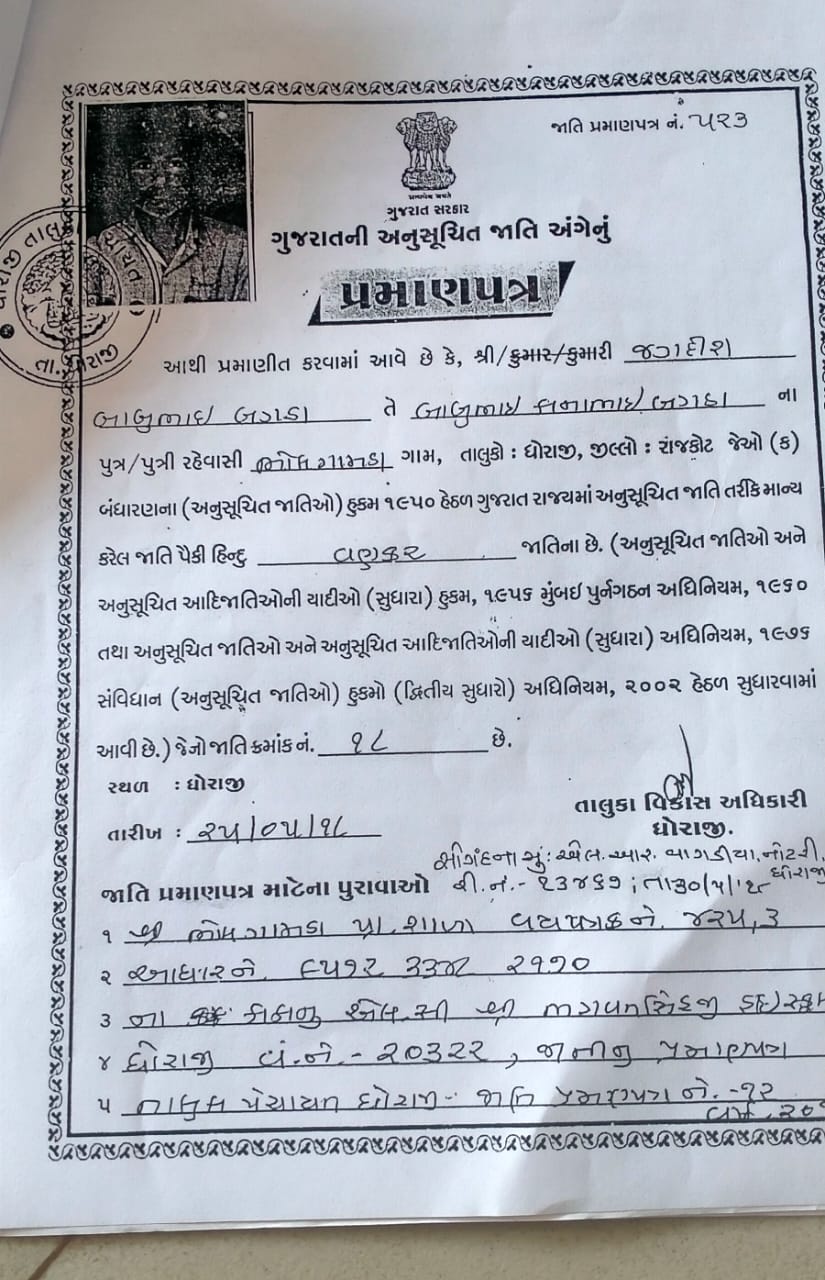 જાતિ પ્રમાણપત્ર નં. ૫૨૩
ગુજરાત સરકાર
ગુજરાતની અનુસૂચિત જાતિ અંગેનું
પ્રમાણપત્ર
તા. ધોરાજી
આથી પ્રમાણીત કરવામાં આવે છે કે, શ્રી/કુમાર/કુમારી જગદીશ
બાબુભાઇ બગડા તે બાબુભાઇ કાનાભાઇ બગડા ના
પુત્ર/પુત્રી રહેવાસી ભોલગામડા ગામ, તાલુકો : ધોરાજી, જીલ્લો : રાંજકોટ જેઓ (ક)
બંધારણના (અનુસૂચિત જાતિઓ) હુકમ ૧૯૫૦ હેઠળ ગુજરાત રાજ્યમાં અનુસૂચિત જાતિ તરીકે માન્ય
કરેલ જાતિ પૈકી હિન્દુ વણકર જાતિના છે. (અનુસૂચિત જાતિઓ અને
અનુસૂચિત આદિજાતિઓની યાદીઓ (સુધારા) હુકમ, ૧૯૫૬ મુંબઇ પુર્નગઠન અધિનિયમ, ૧૯૬૦
તથા અનુસૂચિત જાતિઓ અને અનુસૂચિત આદિજાતિઓની યાદીઓ (સુધારા) અધિનિયમ, ૧૯૭૬
સંવિધાન (અનુસૂચિત જાતિઓ) હુકમો (દ્વિતીય સુધારો) અધિનિયમ, ૨૦૦૨ હેઠળ સુધારવામાં
આવી છે.) જેનો જાતિ ક્રમાંક નં. ૧૮ છે.
સ્થળ : ધોરાજી
તાલુકા વિકાસ અધિકારી
ધોરાજી.
તારીખ : ૨૫/૦૫/૧૮
સોગંદનામું : એલ. આર. વાગડીયા, નોટરી, ધોરાજી
જાતિ પ્રમાણપત્ર માટેના પુરાવાઓ
૧ શ્રી ભોલગામડા પ્રા. શાળા વયપત્રક નં. ૪૨૫, ૩
૨ આધાર નં. ૬૫૧૨ ૩૩૪ ૨૧૧૦
૩ ના કાકાનુ એલ. સી શ્રી ભગવતસિંહજી હાઇસ્કૂલ
૪ ધોરાજી વ. નં. - ૨૦૩૨૨, જાતીનુ પ્રમાણપત્ર
૫ તાલુકા પંચાયત ધોરાજી - જાતિ પ્રમાણપત્ર નં. - ૧૨